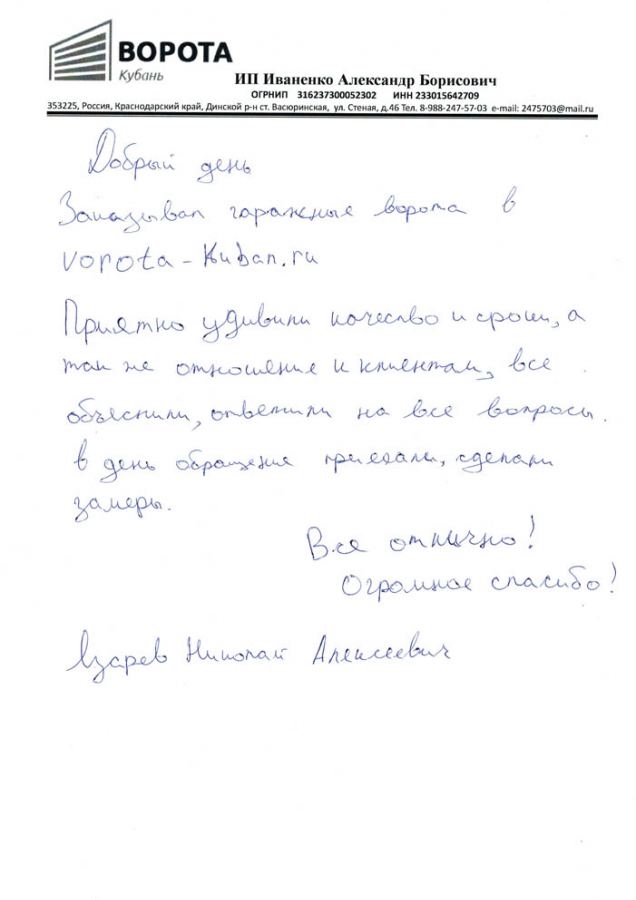 ВОРОТА
Кубань
ИП Иваненко Александр Борисович
ОГРНИП 316237300052302 ИНН 233015642709
353225, Россия, Краснодарский край, Динской р-н ст. Васюринская, ул. Стеная, д.46 Тел. 8-988-247-57-03 e-mail: 2475703@mail.ru
Добрый день
Заказывал гаражные ворота в
vorota-Kuban.ru
Приятно удивили качество и сроки, а
так же отношение к клиентам, все
объяснили, ответили на все вопросы.
в день обращения приехали, сделали
замеры.
Все отлично!
Огромное спасибо!
Николай Алексеевич